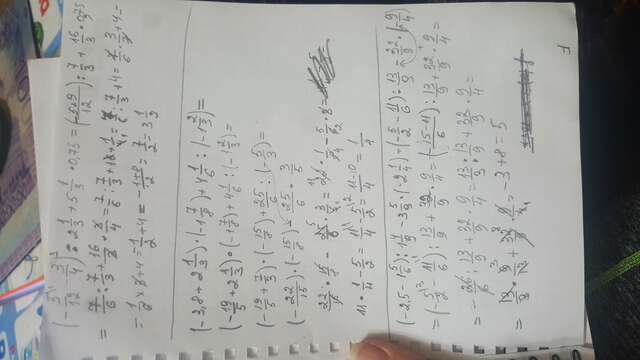 (-5/12 - 3/4) : 2 1/3 + 5 1/3 · 0,75 = (-5+9/12) : 7/3 + 16/3 · 0,75
= 7/6 : 7/3 + 16/3 · 3/4 = 7/6 : 7/3 + 4 = 7/6 · 3/7 + 4 =
= 1/2 + 4 = -1+8/2 = 7/2 = 3 1/2
(-3,8 + 2 1/3) · (-1 7/8) + 4 1/6 : (-1 2/3) =
(-19/5 + 2 1/3) · (-1 7/8) + 4 1/6 : (-1 2/3) =
(-19/5 + 7/3) · (-15/8) + 25/6 : (-5/3) =
(-22/15) · (-15/8) - 25/6 · 3/5
22/15 · 15/8 - 25/6 · 3/5 =
11 · 1/4 - 5/2 = 11/4 - 5/2 = 11-10/4 = 1/4
(-2,5 - 1 5/6) : 1 4/9 - 3 5/9 · (-2 1/4) = (-5/2 - 11/6) : 13/9 - 32/9 · (-9/4)
= (-5/2 - 11/6) : 13/9 + 32/9 · 9/4 = (-15-11/6) : 13/9 + 32/9 · 9/4 =
= -26/6 : 13/9 + 32/9 · 9/4 = 13/3 : 13/9 + 32/9 · 9/4 =
= 13/3 · 9/13 + 32/9 · 9/4 = -3 + 8 = 5